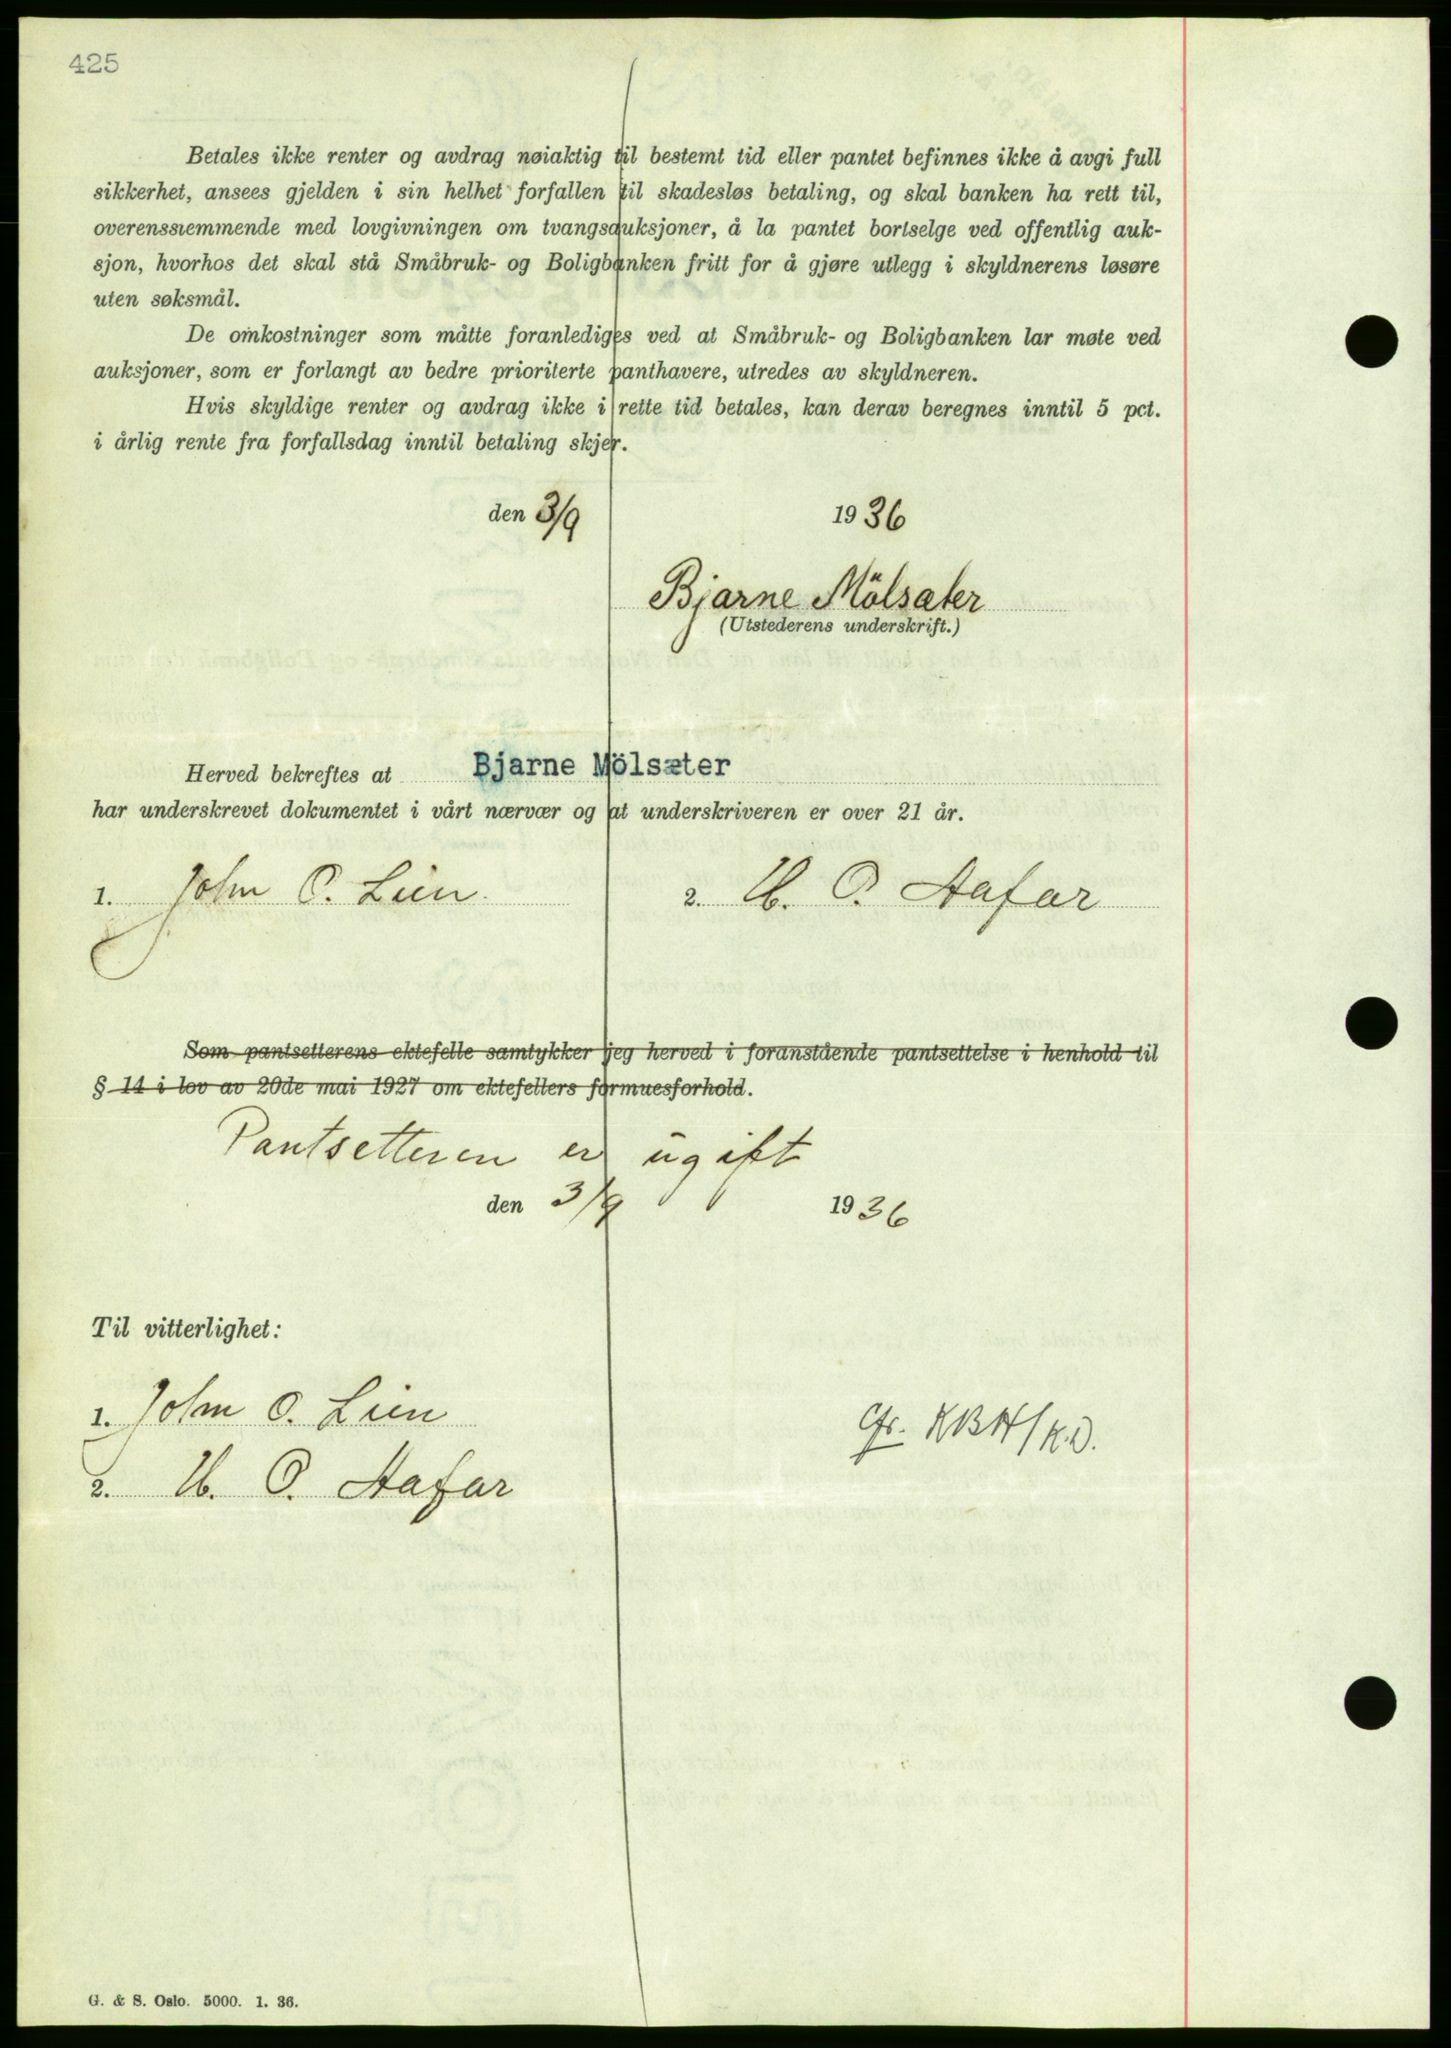 425
Betales ikke renter og avdrag nøiaktig til bestemt tid eller pantet befinnes ikke å avgi full
sikkerhet, ansees gjelden i sin helhet forfallen til skadesløs betaling, og skal banken ha rett til,
overensstemmende med lovgivningen om tvangsauksjoner, å la pantet bortselge ved offentlig auk-
sjon, hvorhos det skal stå Småbruk- og Boligbanken fritt for å gjøre utlegg i skyldnerens løsøre
uten søksmål.
De omkostninger som måtte foranlediges ved at Småbruk- og Boligbanken lar møte ved
auksjoner, som er forlangt av bedre prioriterte panthavere, utredes av skyldneren.
Hvis skyldige renter og avdrag ikke i rette tid betales, kan derav beregnes inntil 5 pct.
i årlig rente fra forfallsdag inntil betaling skjer.
den 3/9 1936
Bjarne Mölsæter
(Utstederens underskrift.)
Herved bekreftes at Bjarne Mölsæter
har underskrevet dokumentet i vårt nærvær og at underskriveren er over 21 år.
1. John O. Lien. 2. O. Hafar
Som pantsetterens ektefelle samtykker jeg herved i foranstående pantsettelse i henhold til
§ 14 i lov av 20de mai 1927 om ektefellers formuesforhold.
Pantsetteren er ugift
den 3/9 1936
Til vitterlighet:
1. John O. Lien
2. O. Hafar
G. & S. Oslo. 5000. 1. 36.